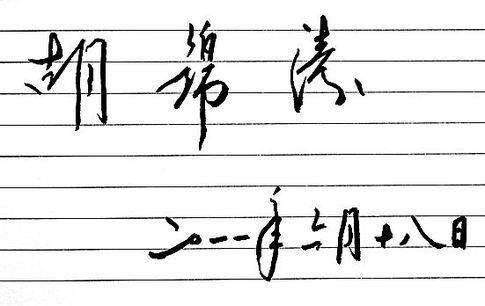 胡锦涛
二〇一一年六月十八日